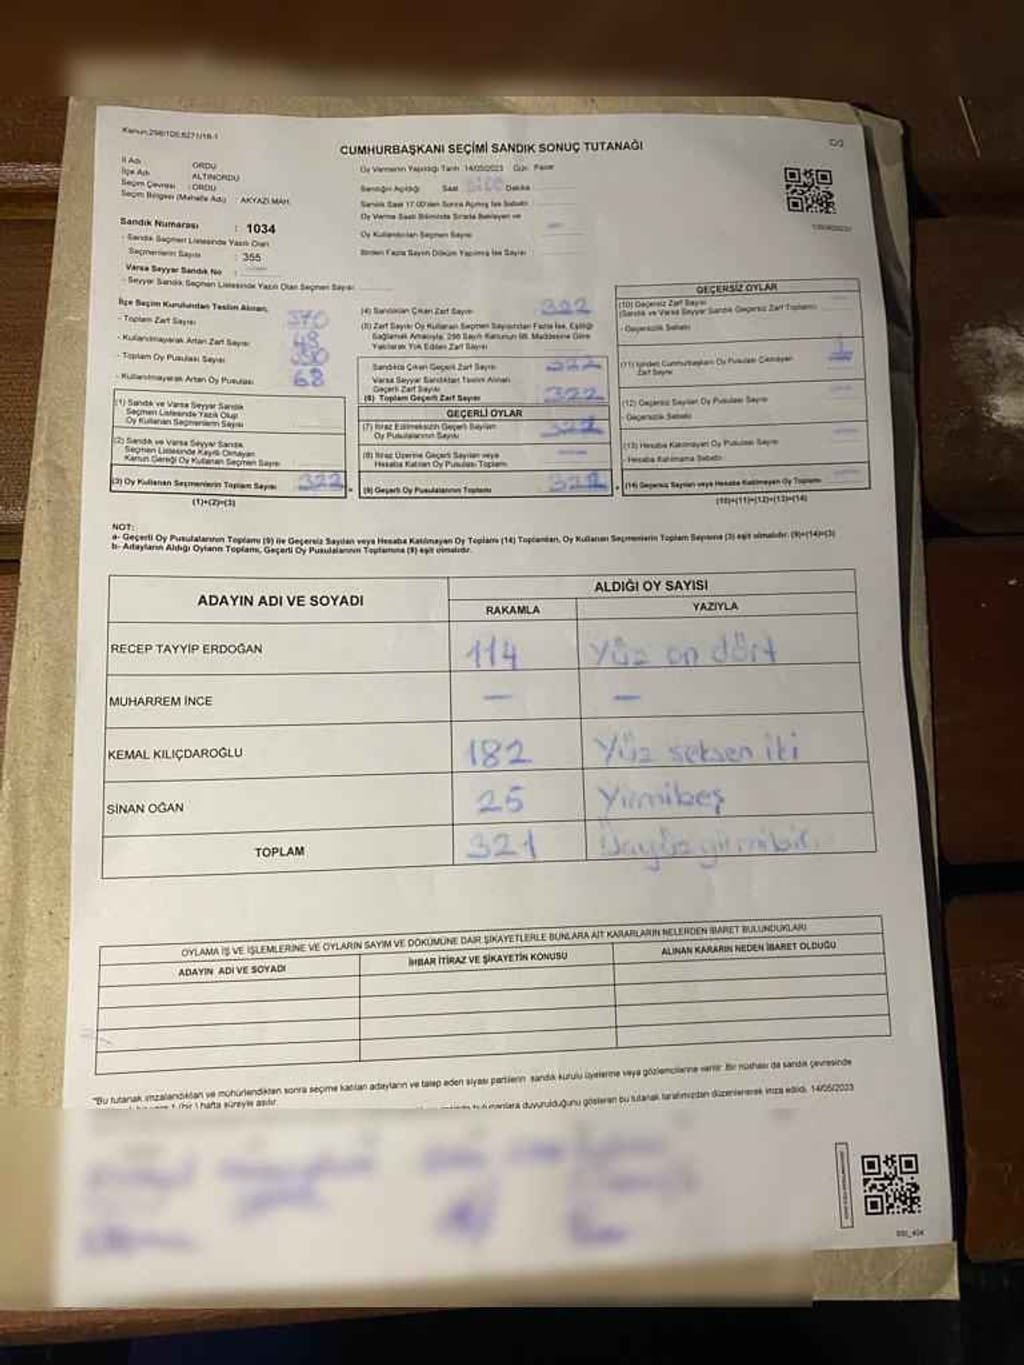 Kanun:298/105,6271/18-1
C/2
CUMHURBAŞKANI SEÇİMİ SANDIK SONUÇ TUTANAĞI
İl Adı : ORDU
İlçe Adı : ALTINORDU
Seçim Çevresi : ORDU
Seçim Bölgesi (Mahalle Adı) : AKYAZI MAH.
Oy Vermenin Yapıldığı Tarih: 14/05/2023 Gün: Pazar
Sandığın Açıldığı Saat Dakika
Sandık Saat 17.00'den Sonra Açılmış İse Sebebi
Oy Verme Saati Bitiminde Sırada Bekleyen ve
Oy Kullandırılan Seçmen Sayısı
Birden Fazla Sayım Döküm Yapılmış İse Sayısı
Sandık Numarası : 1034
- Sandık Seçmen Listesinde Yazılı Olan
Seçmenlerin Sayısı : 355
Varsa Seyyar Sandık No :
- Seyyar Sandık Seçmen Listesinde Yazılı Olan Seçmen Sayısı
İlçe Seçim Kurulundan Teslim Alınan;
- Toplam Zarf Sayısı 370
- Kullanılmayarak Artan Zarf Sayısı 48
- Toplam Oy Pusulası Sayısı
- Kullanılmayarak Artan Oy Pusulası 68
(1) Sandık ve Varsa Seyyar Sandık
Seçmen Listesinde Yazılı Olup
Oy Kullanan Seçmenlerin Sayısı
(2) Sandık ve Varsa Seyyar Sandık
Seçmen Listesinde Kayıtlı Olmayan
Kanun Gereği Oy Kullanan Seçmen Sayısı
(3) Oy Kullanan Seçmenlerin Toplam Sayısı 322
(1)+(2)=(3)
(4) Sandıktan Çıkan Zarf Sayısı 322
(5) Zarf Sayısı Oy Kullanan Seçmen Sayısından Fazla İse, Eşitliği
Sağlamak Amacıyla, 298 Sayılı Kanunun 98. Maddesine Göre
Yakılarak Yok Edilen Zarf Sayısı
Sandıkta Çıkan Geçerli Zarf Sayısı 322
Varsa Seyyar Sandıktan Teslim Alınan
Geçerli Zarf Sayısı
(6) Toplam Geçerli Zarf Sayısı 322
GEÇERLİ OYLAR
(7) İtiraz Edilmeksizin Geçerli Sayılan
Oy Pusulalarının Sayısı
(8) İtiraz Üzerine Geçerli Sayılan veya
Hesaba Katılan Oy Pusulası Toplamı
(9) Geçerli Oy Pusulalarının Toplamı
GEÇERSİZ OYLAR
(10) Geçersiz Zarf Sayısı
(Sandık ve Varsa Seyyar Sandık Geçersiz Zarf Toplamı)
- Geçersizlik Sebebi:
(11) İçinden Cumhurbaşkanı Oy Pusulası Çıkmayan
Zarf Sayısı 1
(12) Geçersiz Sayılan Oy Pusula Sayısı
- Geçersizlik Sebebi:
(13) Hesaba Katılmayan Oy Pusula Sayısı
- Hesaba Katılmama Sebebi:
(14) Geçersiz Sayılan veya Hesaba Katılmayan Oy Toplamı
(10)+(11)+(12)+(13)=(14)
NOT:
a- Geçerli Oy Pusulalarının Toplamı (9) ile Geçersiz Sayılan veya Hesaba Katılmayan Oy Toplamı (14) Toplamları, Oy Kullanan Seçmenlerin Toplam Sayısına (3) eşit olmalıdır. (9)+(14)=(3)
b- Adayların Aldığı Oyların Toplamı, Geçerli Oy Pusulalarının Toplamına (9) eşit olmalıdır.
ADAYIN ADI VE SOYADI
ALDIĞI OY SAYISI
RAKAMLA YAZIYLA
RECEP TAYYİP ERDOĞAN 114 Yüz on dört
MUHARREM İNCE — —
KEMAL KILIÇDAROĞLU 182 Yüz seksen iki
SİNAN OĞAN 25 Yirmibeş
TOPLAM 321 Üçyüz yirmibir
OYLAMA İŞ VE İŞLEMLERİNE VE OYLARIN SAYIM VE DÖKÜMÜNE DAİR ŞİKAYETLERLE BUNLARA AİT KARARLARIN NELERDEN İBARET BULUNDUKLARI
ADAYIN ADI VE SOYADI İHBAR İTİRAZ VE ŞİKAYETİN KONUSU ALINAN KARARIN NEDEN İBARET OLDUĞU
"Bu tutanak imzalandıktan ve mühürlendikten sonra seçime katılan adayların ve talep eden siyasi partilerin sandık kurulu üyelerine veya gözlemcilerine verilir. Bir nüshası da sandık çevresinde
1 (bir) hafta süreyle asılır.
duyurulduğunu gösteren bu tutanak tarafımızdan düzenlenerek imza edildi. 14/05/2023